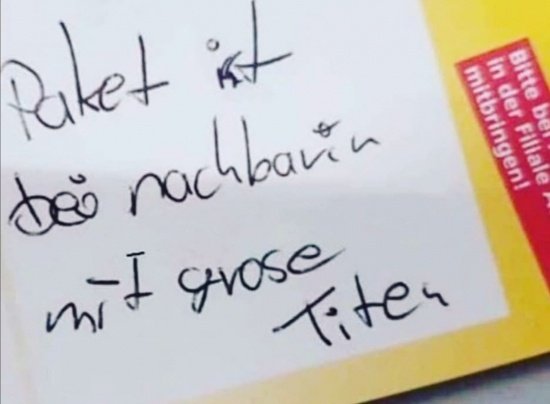 Paket ist
bei nachbarin
mit grose
Titen
Bitte bei
in der Filiale A
mitbringen!